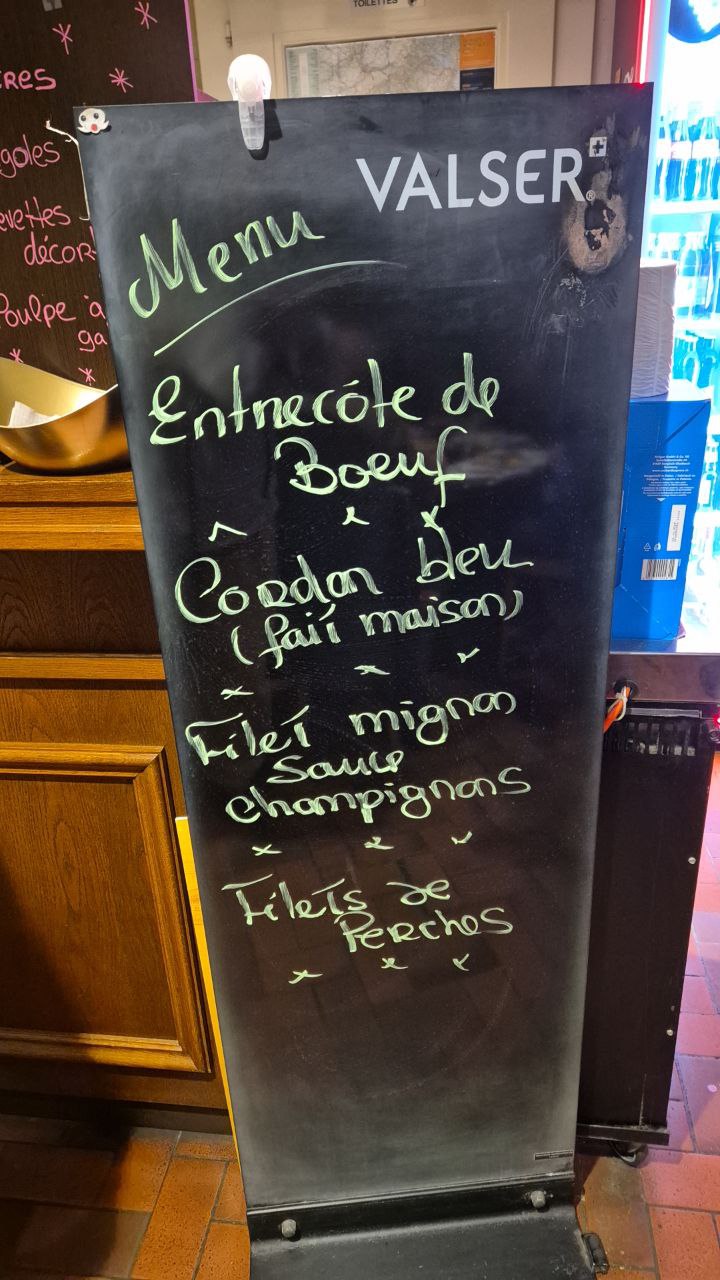 TOILETTES
VALSER
Menu
Entrecôte de
Boeuf
Cordon bleu
(fait maison)
Filet mignon
sauce
champignons
Filets de
Perches
goles
décor
Poulpe à
ga